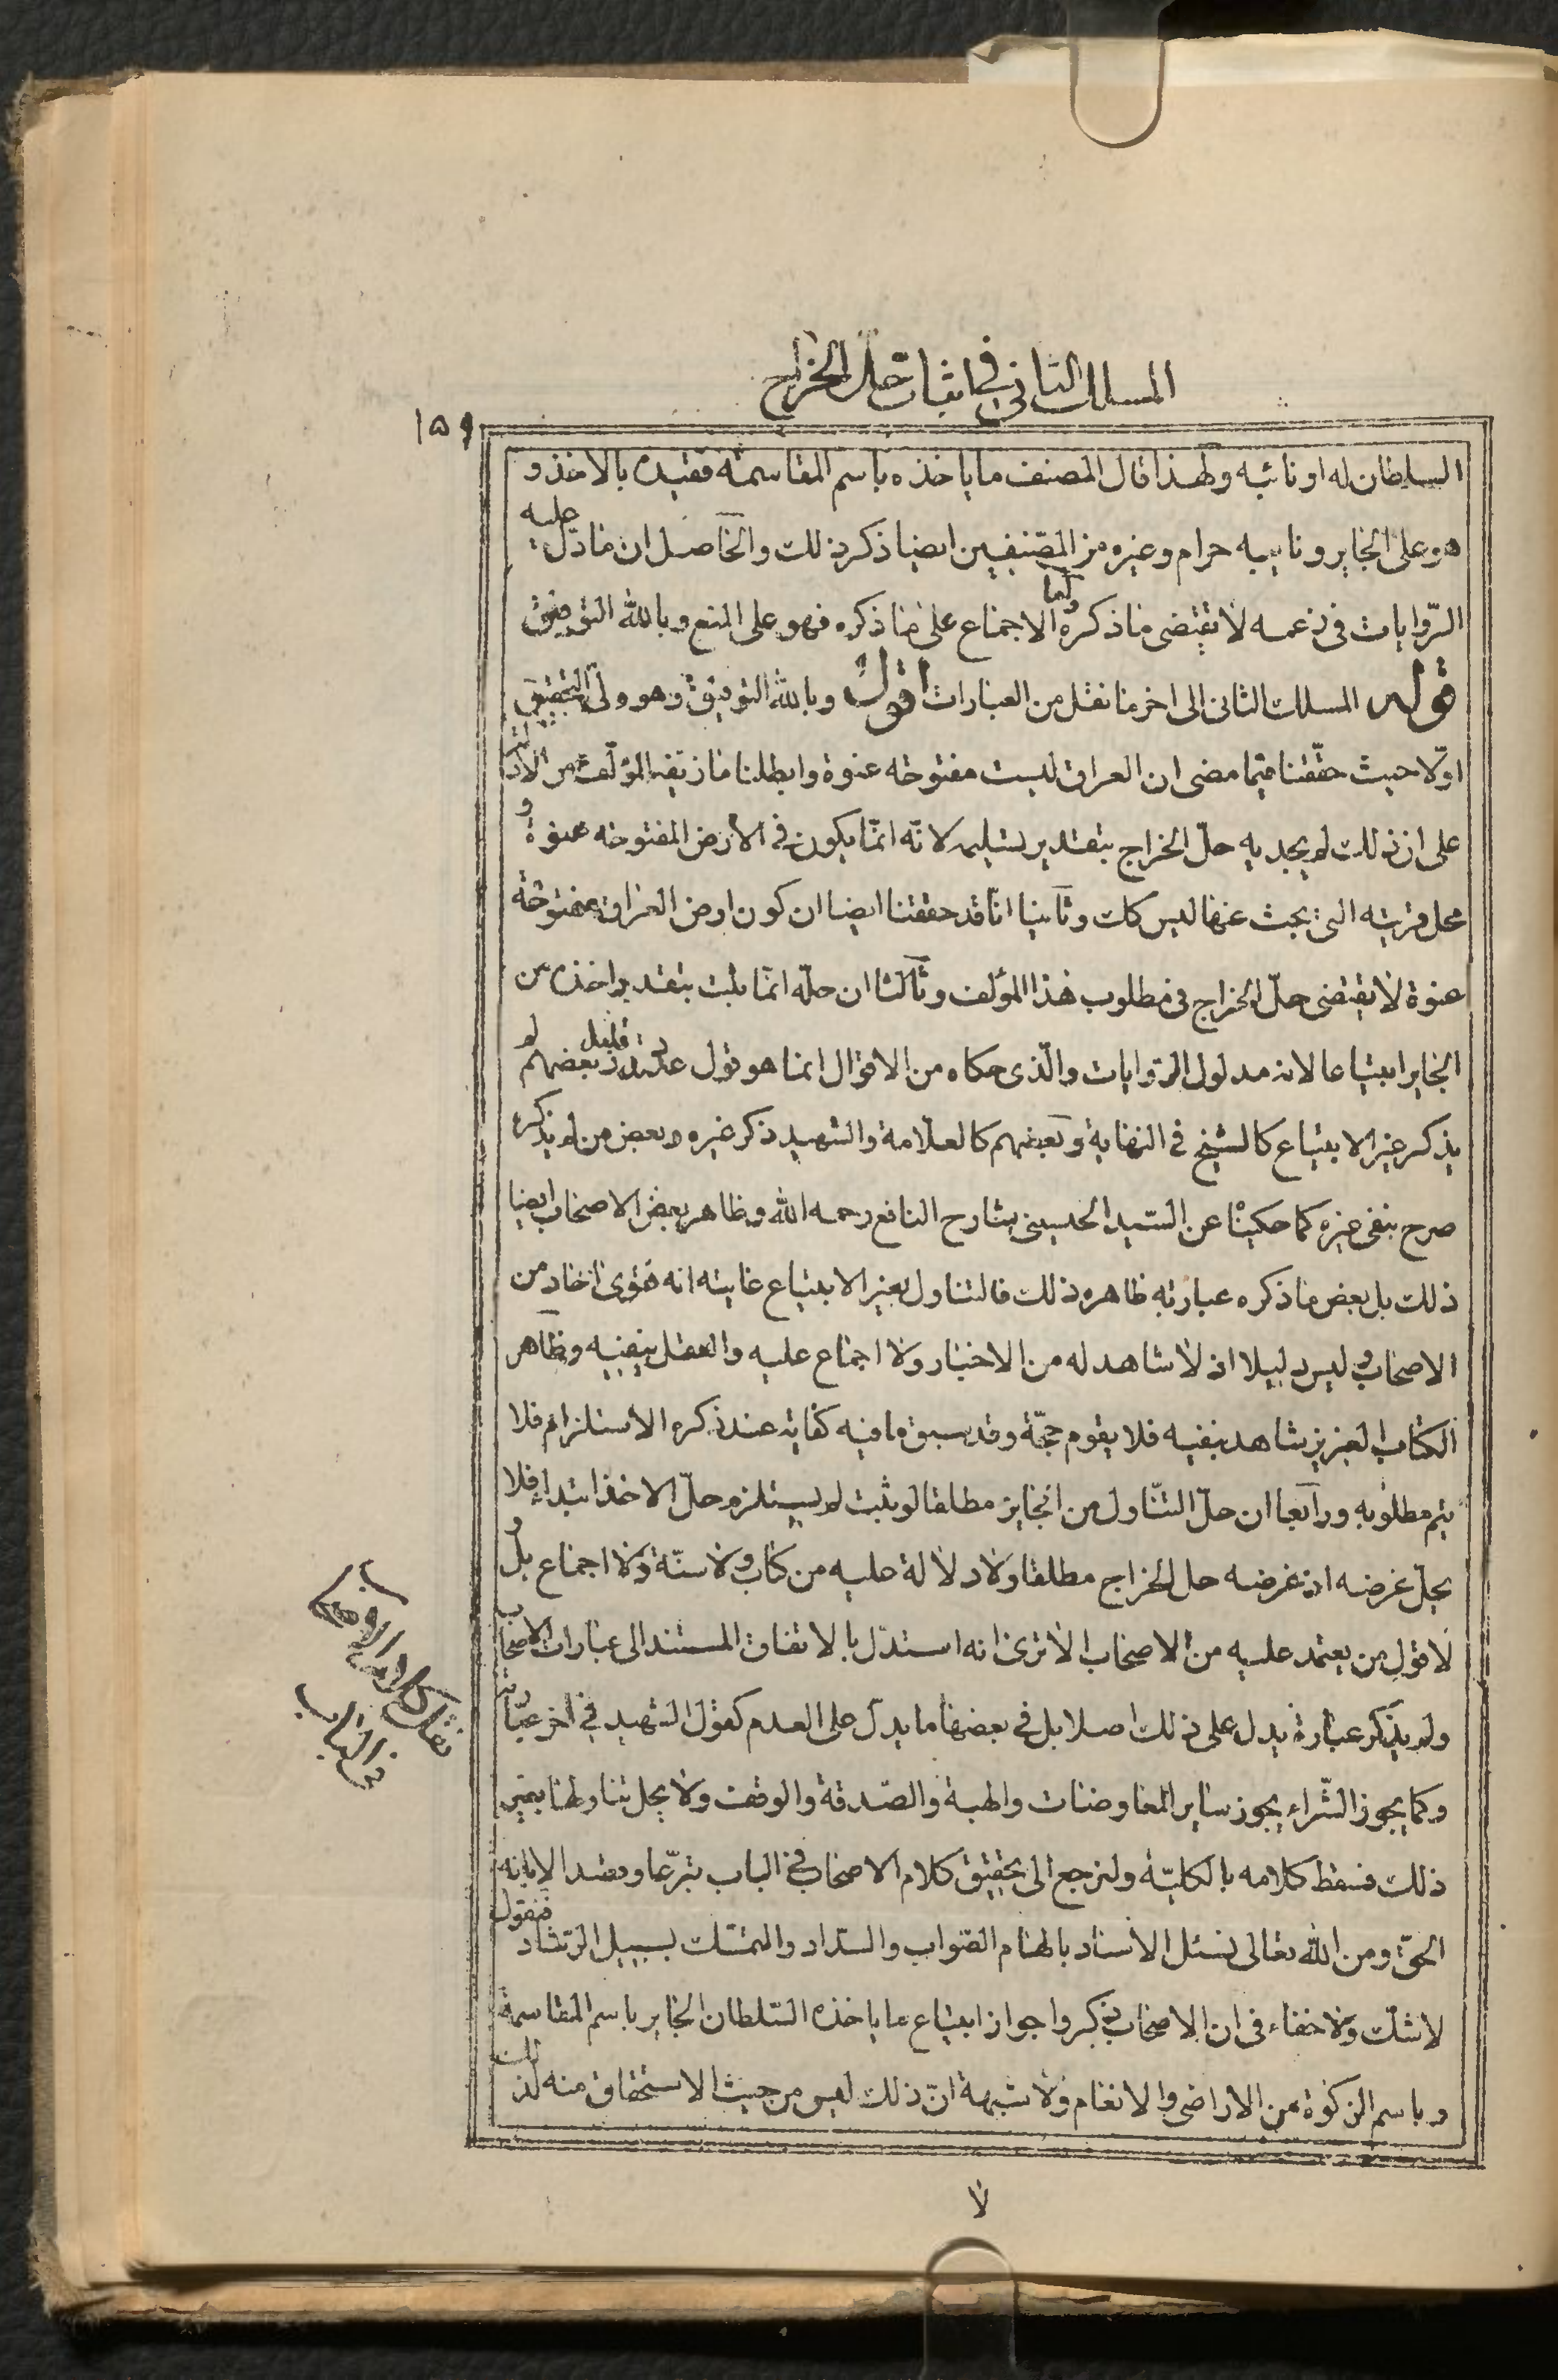 المسلك الثانی فی اثبات حل الخراج
١٥٩
السلطان له او نائبه ولهذا قال المصنف ما یاخذه باسم المقاسمة فقیده بالاخذ و
هو علی الجایر ونایبه حرام وغیره من المصنفین ایضا ذکر ذلك والحاصل ان ما دل علیه
الروایات فی زعمه لا تقتضی ما ذکره واما الاجماع علی ما ذکره فهو علی المنع وبالله التوفیق
قوله المسلك الثانی الی اخر ما نقل من العبارات اقول وبالله التوفیق وهو ولی التحقیق
اولا حیث حققنا فیما مضی ان العراق لیست مفتوحة عنوة وابطلنا ما زیفه المؤلف من الادلة
علی ان ذلك لم یجد به حل الخراج بتقدیر تسلیمه لانه انما یکون فی الارض المفتوحة عنوة و
محل قریته التی بحث عنها لیس کك وثانیا انا قد حققنا ایضا ان کون ارض العراق مفتوحة
عنوة لا یقتضی حل الخراج فی مطلوب هذا المؤلف وثالثا ان حله انما یثبت بتقدیر اخذه من
الجایر ابتیاعا لانه مدلول الروایات والذی حکاه من الاقوال انما هو قول عدد قلیل بعضهم لم
یذکر غیر الابتیاع کالشیخ فی النهایة وبعضهم کالعلامة والشهید ذکر غیره وبعض من لم یذکره
صرح بنفی غیره کما حکیناه عن السید الحسینی شارح النافع رحمه الله وظاهر بعض الاصحاب ایضا
ذلك بل بعض ما ذکره عبارته ظاهره ذلك فالتناول بغیر الابتیاع غایته انه فتوی اخاد من
الاصحاب ولیس دلیلا اذ لا شاهد له من الاخبار ولا اجماع علیه والعقل ینفیه وظاهر
الکتاب العزیز شاهد بنفیه فلا یقوم حجة وقد سبق ما فیه کفایة عند ذکره الاستلزام فلا
یتم مطلوبه ورابعا ان حل التناول من الجایر مطلقا لو ثبت لم یستلزم حل الاخذ ابتداء فلا
یحل غرضه اذ غرضه حل الخراج مطلقا ولا دلالة علیه من کتاب ولا سنة ولا اجماع بل و
لا قول من یعتمد علیه من الاصحاب الا تری انه استدل بالاتفاق المستند الی عبارات الاصحاب
ولم یذکر عبارة یدل علی ذلك اصلا بل فی بعضها ما یدل علی العدم کقول الشهید فی اخر عبارته
وکما یجوز الشراء یجوز سایر المعاوضات والهبة والصدقة والوقف ولا یحل تناولها بغیر
ذلك فسقط کلامه بالکلیة ولنرجع الی تحقیق کلام الاصحاب فی الباب تبرعا وقصد الابانة
الحق ومن الله تعالی نسئل الاسناد بالهام الصواب والسداد والتمسك بسبیل الرشاد فنقول
لا شك ولا خفاء فی ان الاصحاب ذکروا جواز ابتیاع ما یاخذه السلطان الجایر باسم المقاسمة
وباسم الزکوة من الاراضی والانعام ولا شبهة ان ذلك لیس من حیث الاستحقاق منه لذلك
لا